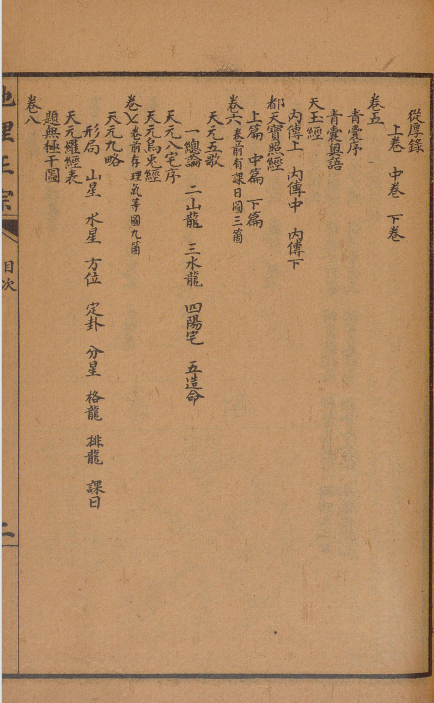 從厚錄
上卷 中卷 下卷
卷五
青囊序
青囊奧語
天玉經
內傳上 內傳中 內傳下
都天寶照經
上篇 中篇 下篇
卷六 卷前有課日圖三箇
天元五歌
一總論 二山龍 三水龍 四陽宅 五造命
天元八宅序
天元烏兔經
卷七 卷前有理氣等圖九箇
天元九略
形局 山星 水星 方位 定卦 分星 格龍 排龍 課日
天元羅經表
題無極子圖
卷八
地理正宗
目次
二